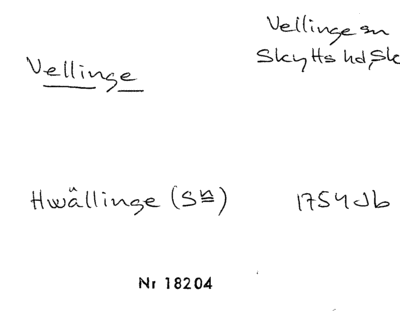 Vellinge
Vellinge sn
Skytts hd, Sk
Hwällinge (Sn) 1754 Jb
Nr 18204